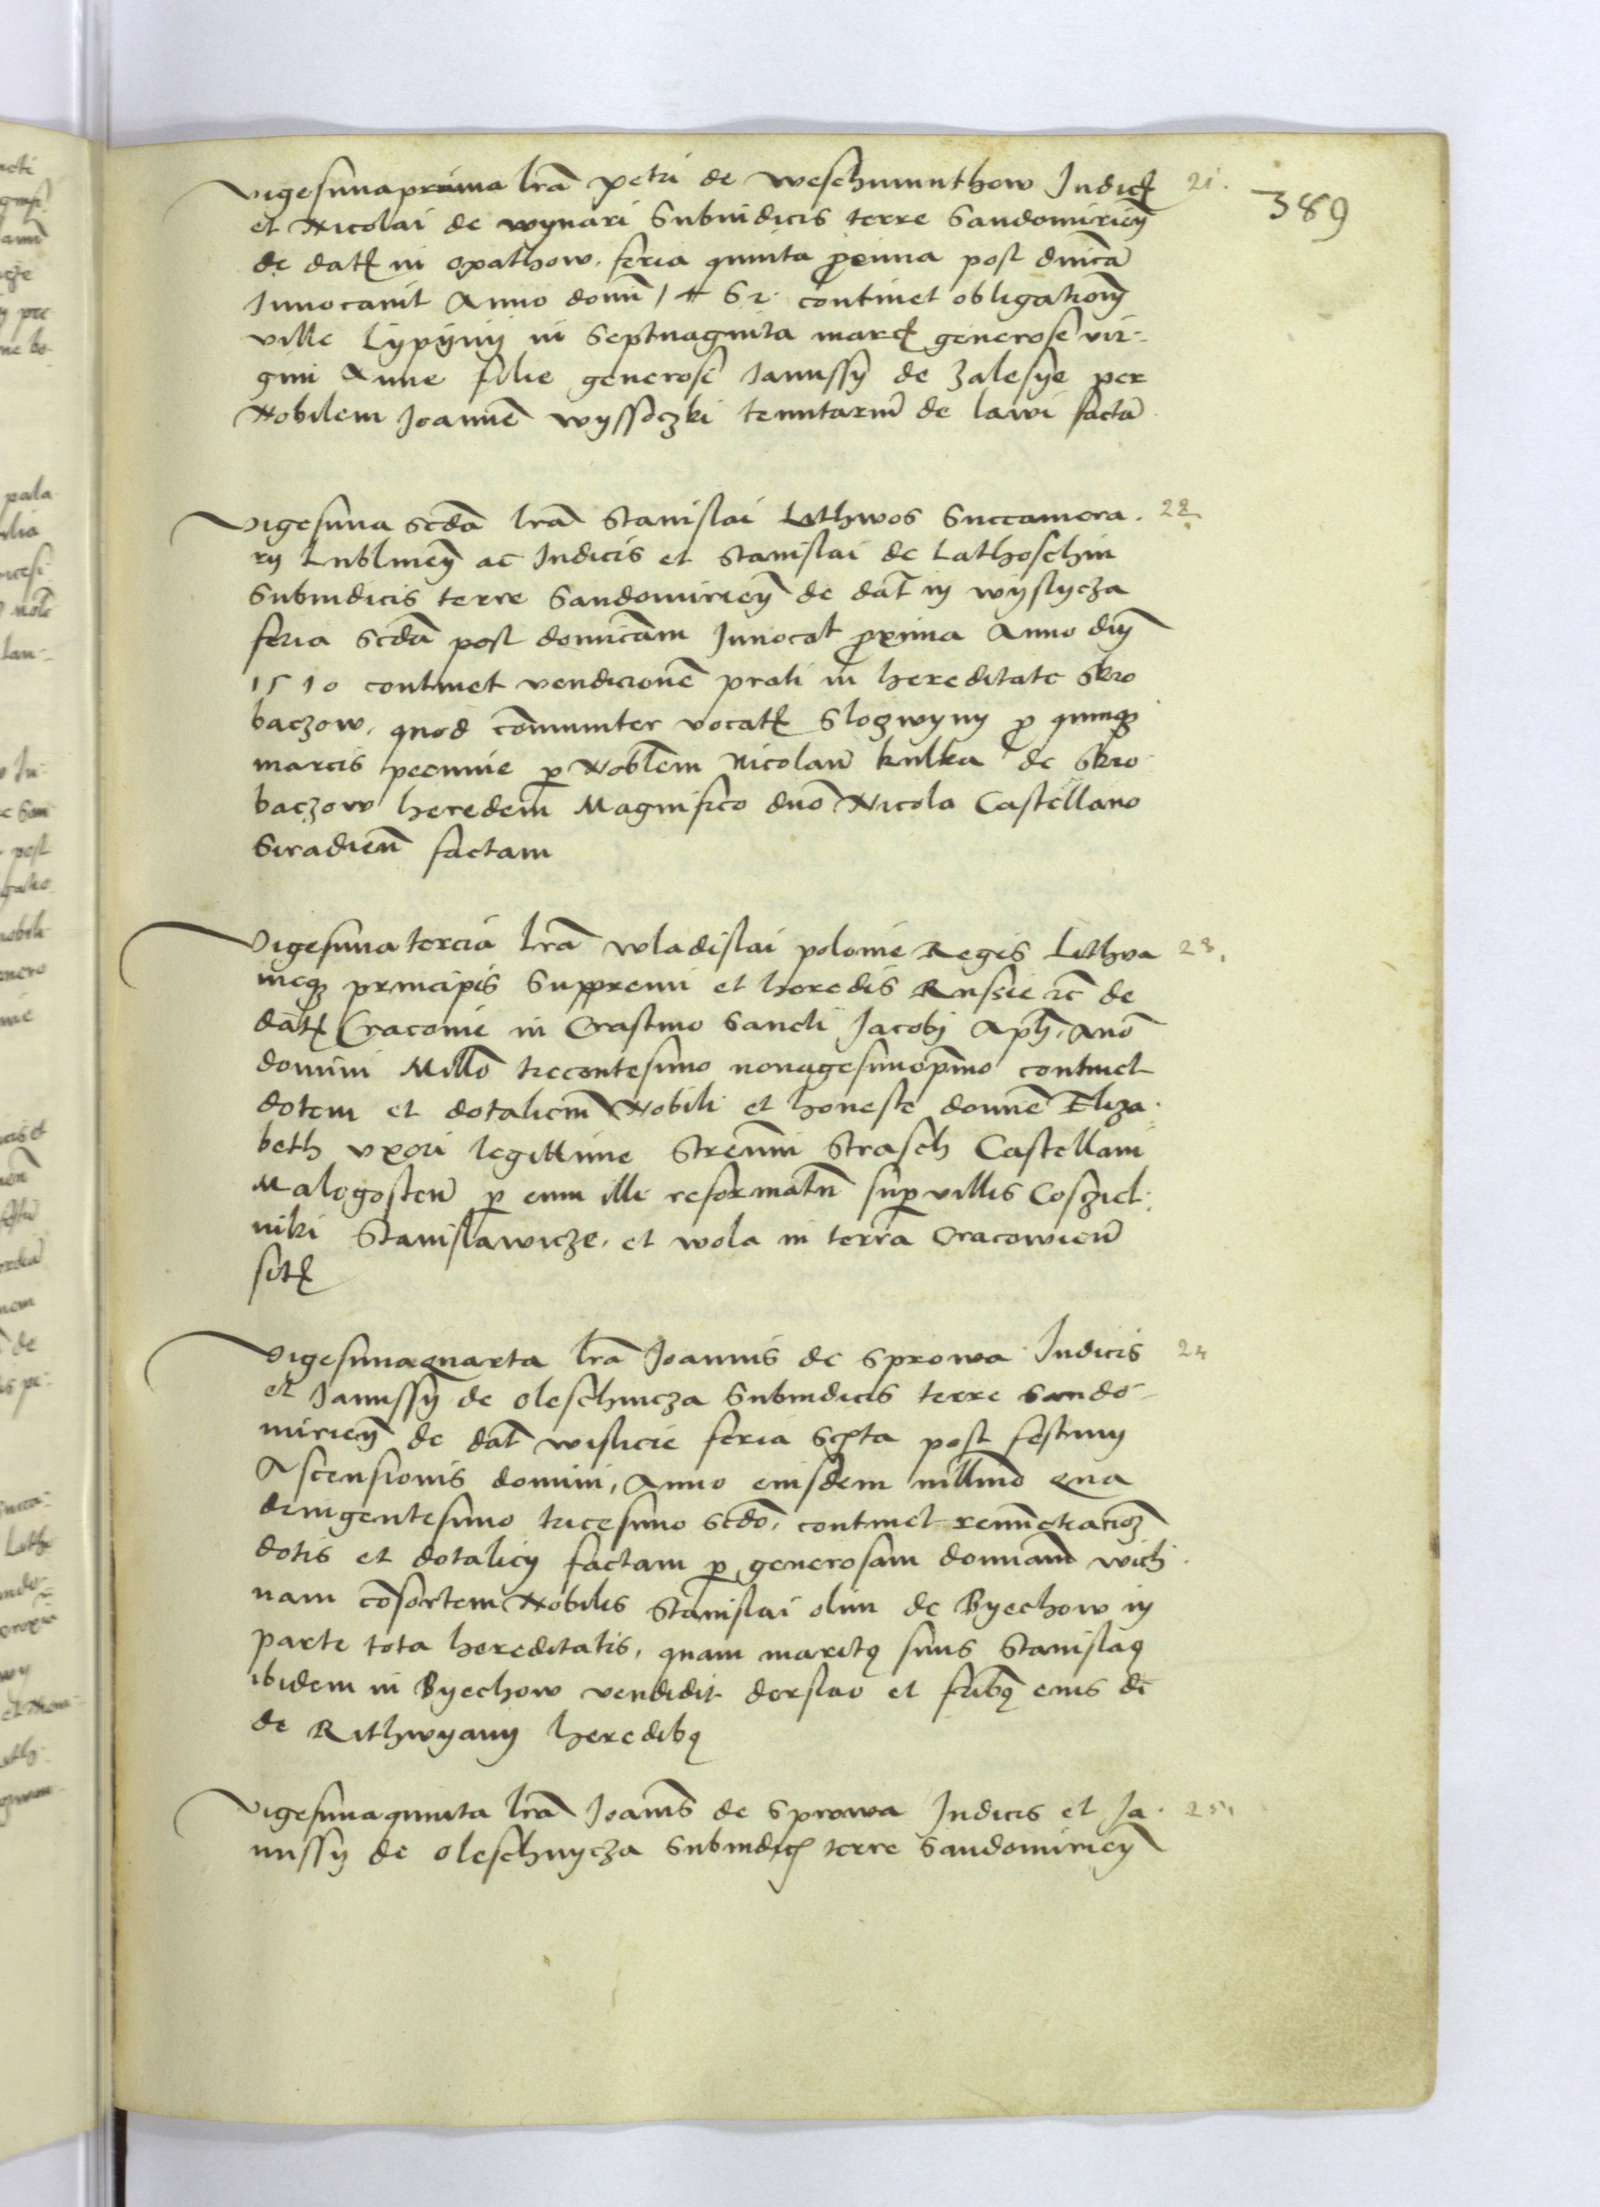 389
Vigesimaprima lrã petri de weschmunthow Iudicꝭ 21.
et Nicolai de wynari Subiudicis terre Sandomirieñ
de datꝭ in opathow. feria quinta ꝓxima post dnĩcã
Innocauit Anno domĩ 1462 continet obligationẽ
ville Lypyny in Septuagīnta marcꝭ generose vir-
gini Anne filie generosi Ianussy de Zalesye per
Nobilem Joannẽ wyssoczki tenutariũ de lawi factã
Vigesima scđa lrã Stanislai Lithwos Succamera- 22
rij Lublineñ ac Iudicis et Stanislai de Lathoschin
Subiudicis terre Sandomirieñ de dat̃ in wyslycza
feria scđa post domicãm Inuocat̃ ꝓxima Anno dnĩ
1510 continet vendicionẽ prati in hereditate Skro
baczow. quod cõmuniter vocatꝭ Slozwyny ꝓ quinqꝫ
marcis pecunie ꝑ Nobłem Nicolaũ kulka de Skro
baczow heredem Magnifico dnõ Nicola Castellano
Siradieñ factam
Vigesimatercia lrã wladislai polonie Regis Lithva 23.
nieqꝫ principis Suppremi et heredis Russie ꝛc̃ de
datꝭ Cracouie in Crastino Sancti Jacobi Apłi. Anõ
domini Millõ trecentesimo nonagesimop̃mo continet
dotem et dotaliciũ Nobili et honeste domĩe Eliza-
beth vxori legittime Strenui Strasch Castellani
Malogosteñ ꝑ eum illi reformatũ suꝑ villis Cosziel-
niki Stanislawicze. et wola in terra Cracowieñ
sitꝭ
Vigesimaquarta lrã Joannis de Sprowa Iudicis 24
et Ianussy de Oleschnicza Subiudicis terre Sando-
mirieñ de dat̃ wislicie feria Sexta post festum
Ascensionis domini, Anno eiusdem millmõ qua
dringentesimo tricesimo scđo. continet renũctiacionẽ
dotis et dotalicij factam ꝑ generosam dominam wich
nam cõsortem Nobilis Stanislai olim de Byechow in
parte tota hereditatis, quam maritꝰ suus Stanislaꝰ
ibidem in Byechow vendidit derslao et fr̃ibꝰ eius de
de Rithwyany heredibꝰ
Vigesimaquinta lrã Joañis de Sprowa Iudicis et Ja- 25.
nussy de Oleschnycza Subiudicꝭ terre Sandomirieñ